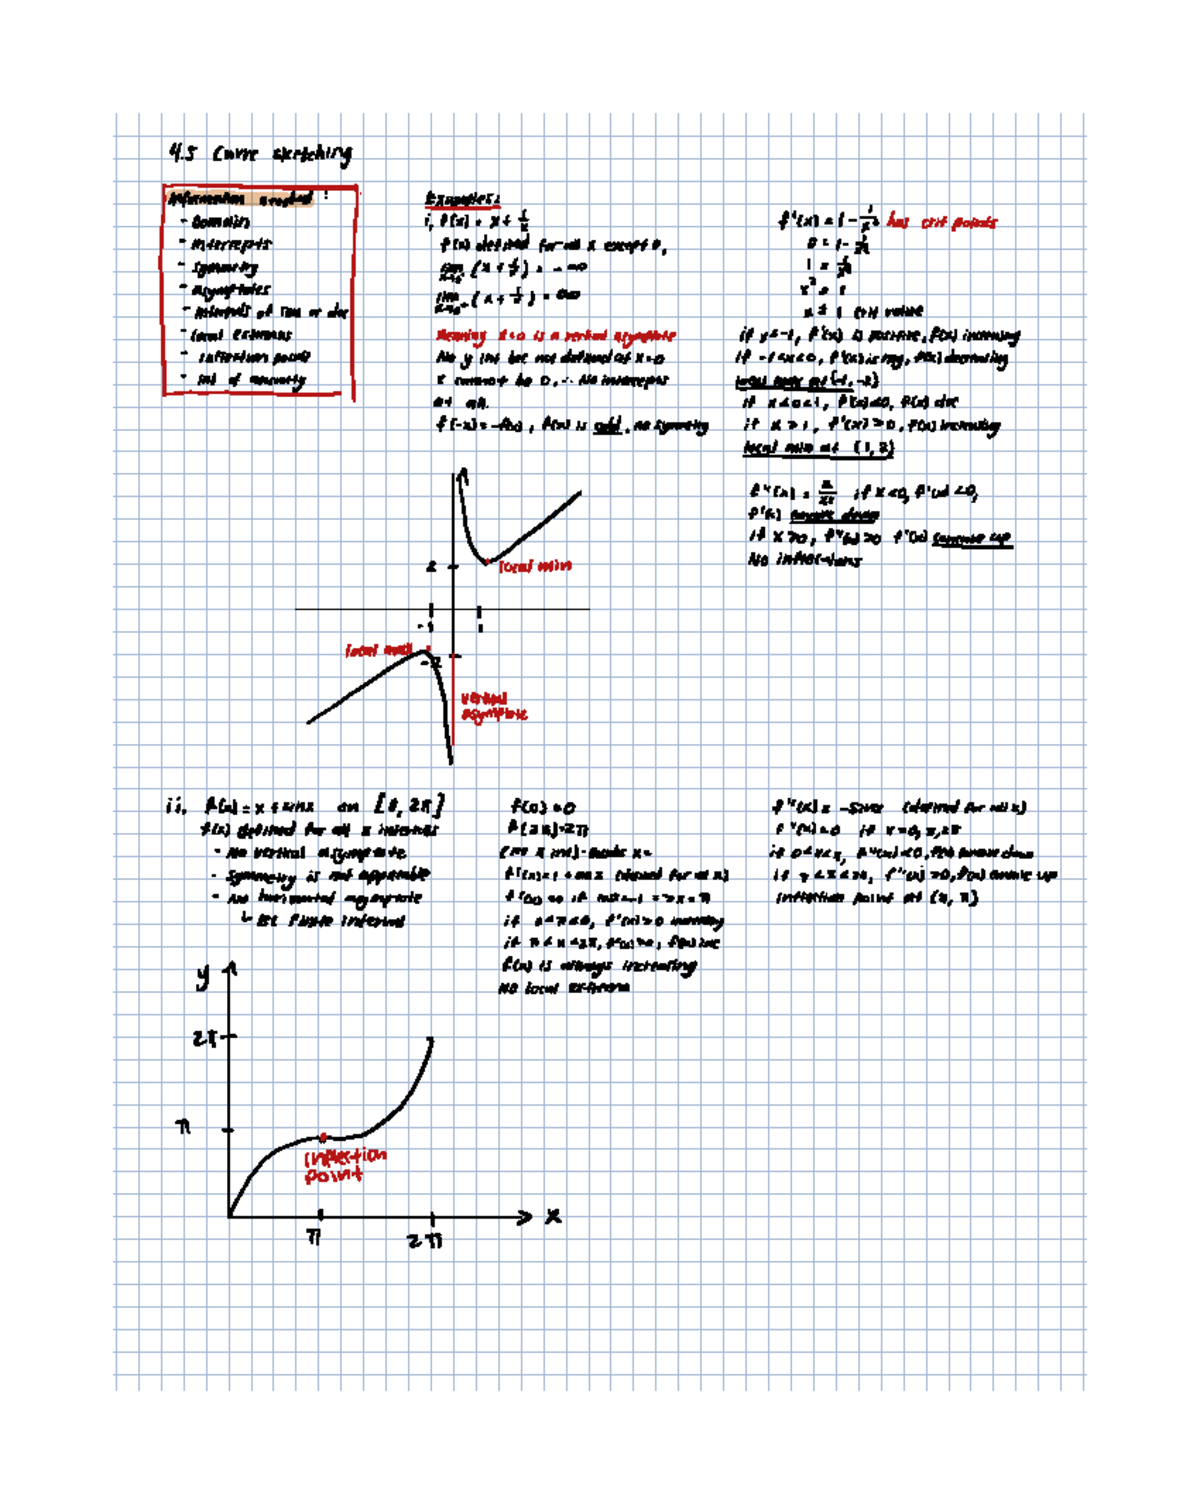 4.5 Curve sketching
Information needed :
- Domain
- Intercepts
- Symmetry
- Asymptotes
- Intervals of inc or dec
- Local Extrema
- Inflection point
- Int of concavity
Examples:
i, f(x) = x + 1/x
f(x) defined for all x except 0,
lim (x + 1/x) = -∞
lim (x + 1/x) = ∞
Meaning x=0 is a vertical asymptote
No y int bc not defined at x=0
x cannot be 0, ∴ No intercepts
at all.
f(-x) = -f(x), f(x) is odd, no symmetry
f'(x) = 1 - 1/x² has crit points
0 = 1 - 1/x²
1 = 1/x²
x² = 1
x ± 1 crit value
if x<-1, f'(x) is positive, f(x) increasing
if -1<x<0, f'(x) is neg, f(x) decreasing
local max at (-1, -2)
if x<0<1, f'(x)<0, f(x) dec
if x > 1, f'(x) > 0, f(x) increasing
local min at (1, 2)
f''(x) = 2/x³ if x<0, f''(x) <0,
f'(x) concave down
if x>0, f''(x) >0 f''(x) concave up
No inflections
2
local min
-1
1
local max
-2
vertical
asymptote
ii. f(x) = x + sinx on [0, 2π]
f(x) defined for all x interval
- No vertical asymptote
- Symmetry is not applicable
- No horizontal asymptote
↳ bc finite interval
f(0) = 0
f(2π)=2π
f'(x)=1 + cosx (defined for all x)
f'(x) =0 if cosx=-1 => x=π
if π<x<2π, f'(x)>0, f(x) inc
f(x) is always increasing
No local extrema
f''(x) = -sinx (defined for all x)
f''(x)=0 if x=0, π, 2π
if 0<x<π, f''(x)<0, f(x) concave down
if π<x<2π, f''(x) >0, f(x) concave up
inflection point at (π, π)
y
2π
π
inflection
point
x
π
2π